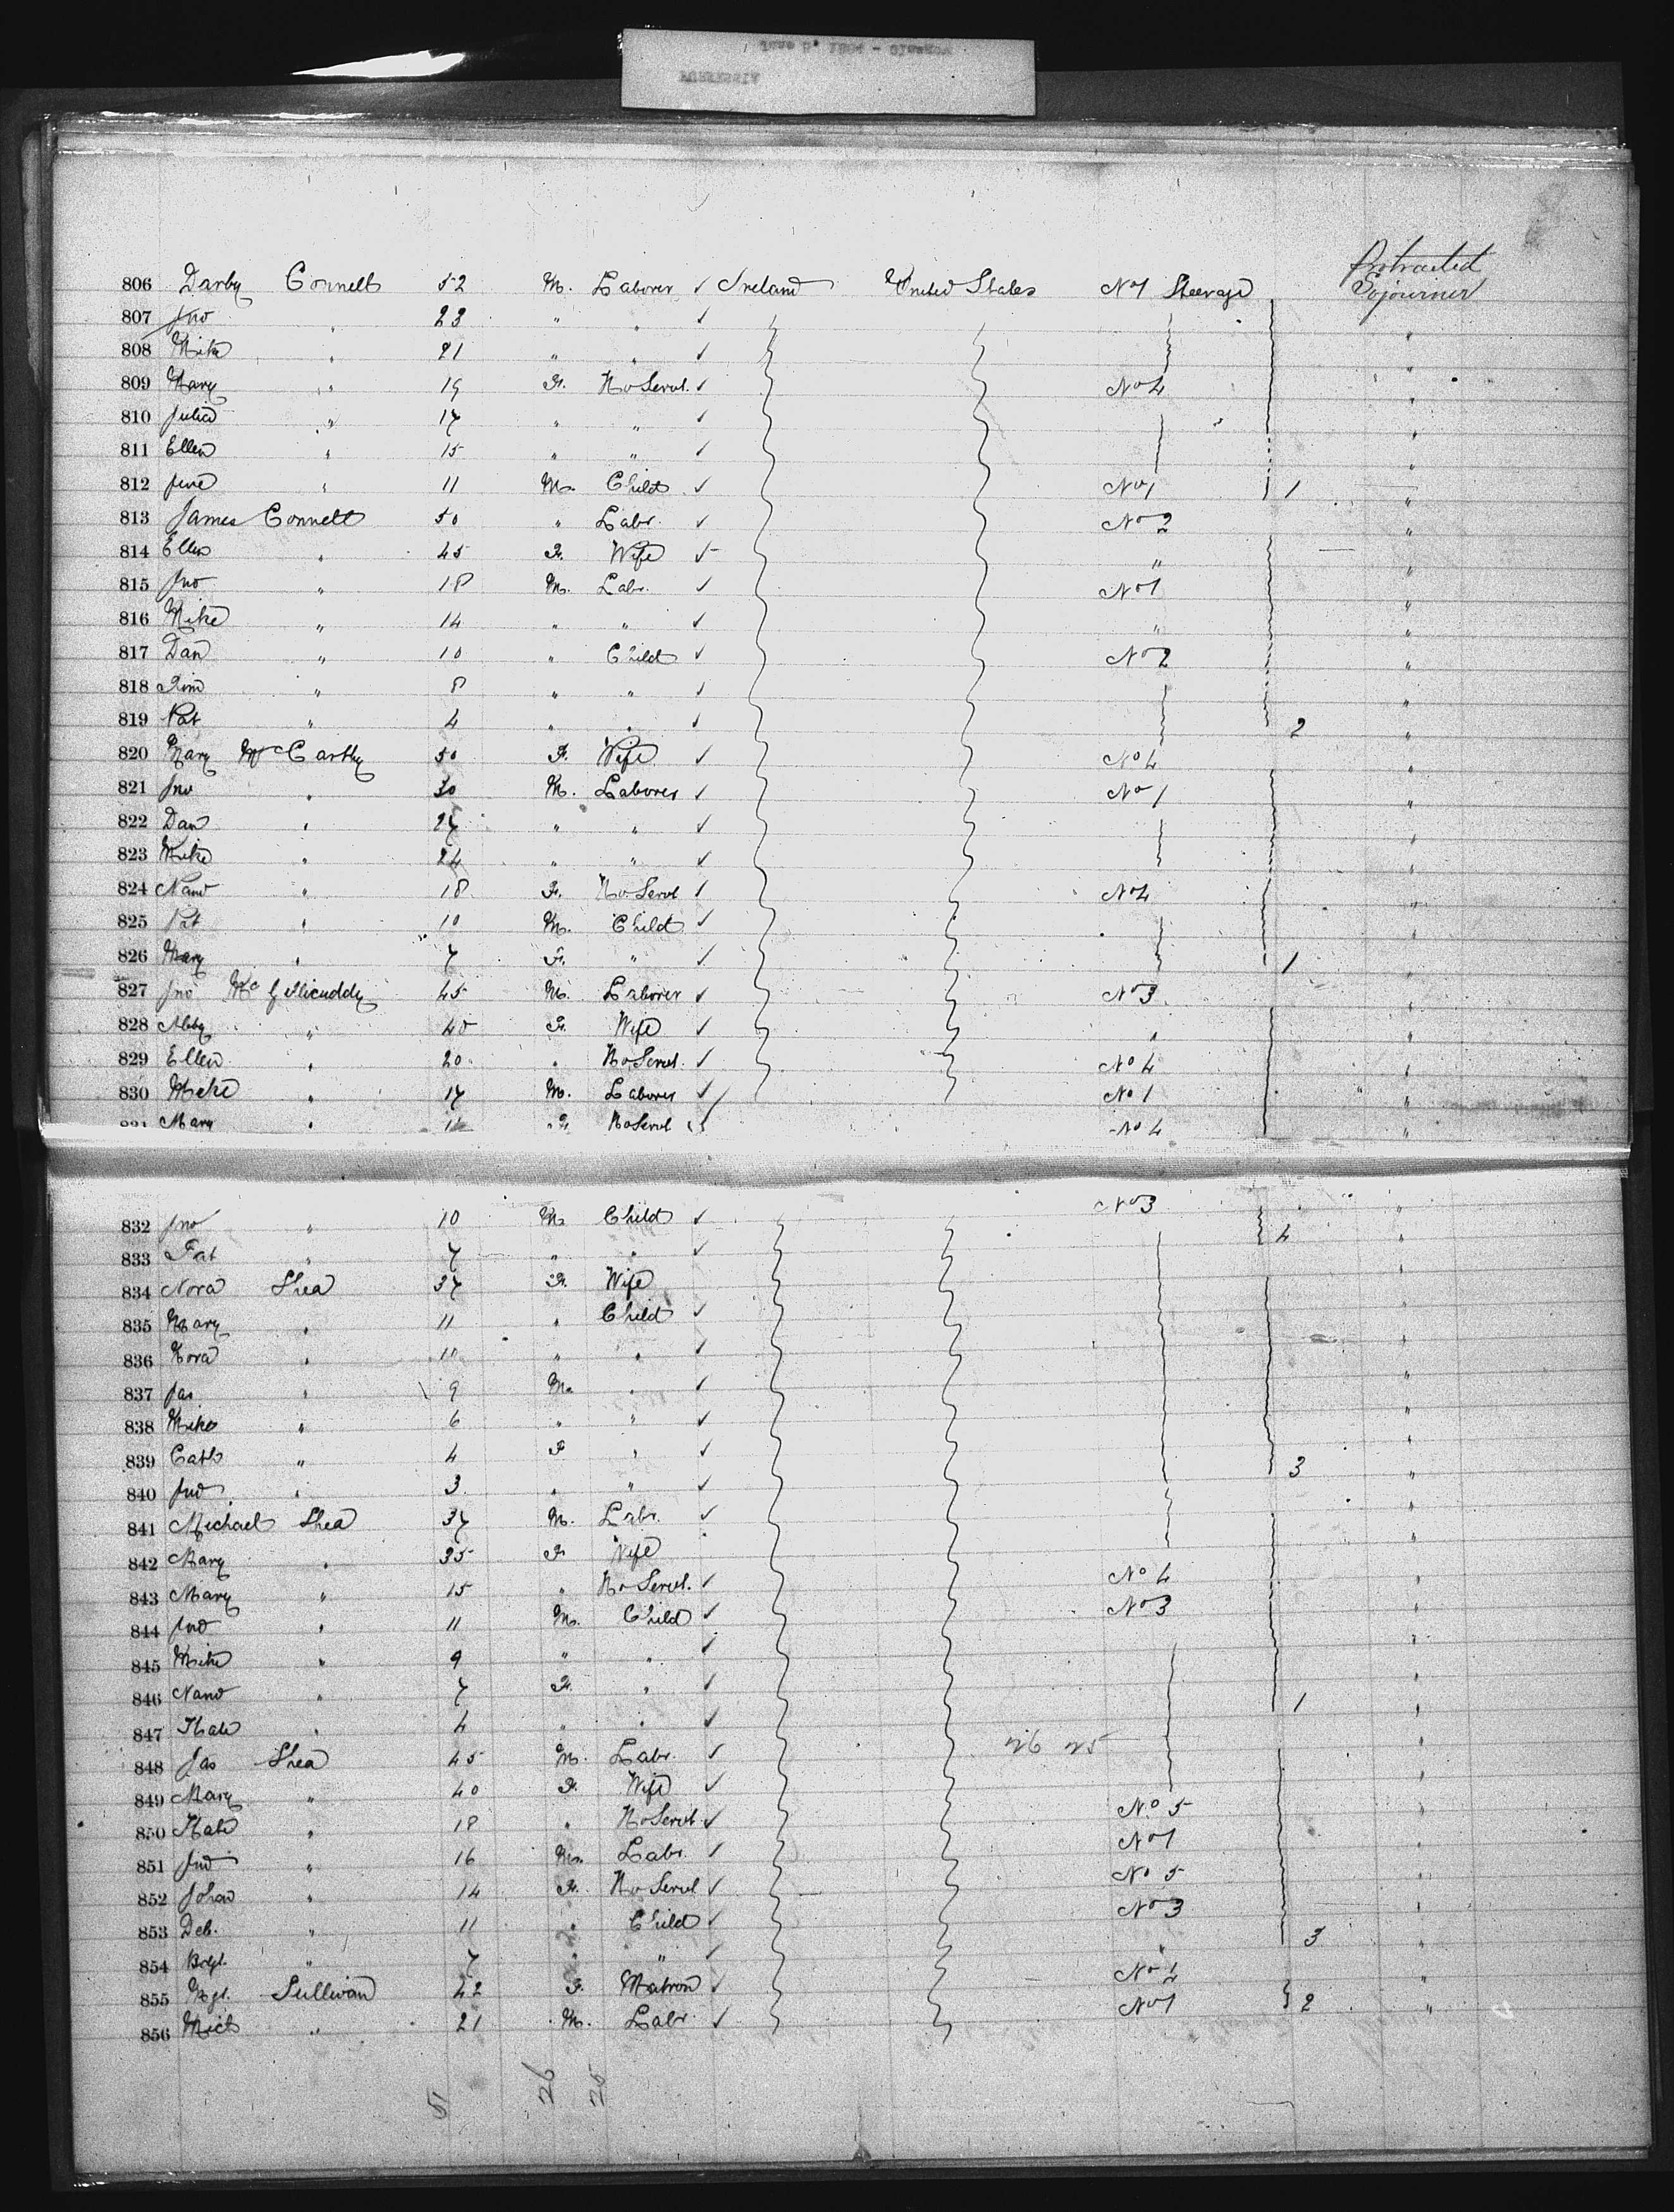 Protracted
806 Darby Connell 52 M. Laborer ✓ Ireland United States No 1 Steerage Sojourner
807 Jno " 23 " " ✓ "
808 Mike " 21 " " ✓ "
809 Mary " 19 F. Ho Servt. ✓ No 4 "
810 Julia " 17 " " ✓ "
811 Ellen " 15 " " ✓ "
812 11 M. Child ✓ No 1 1 "
813 James Connell 50 " Labr. ✓ No 2 "
814 Ellen " 45 F. Wife ✓ " "
815 Jno " 18 M. Labr. ✓ No 1 "
816 Mike " 14 " " ✓ " "
817 Dan " 10 " Child ✓ No 2 "
818 Tim " 8 " " ✓ "
819 Pat " 4 " " ✓ 2 "
820 Mary McCarthy 50 F. Wife ✓ No 4 "
821 Jno " 30 M. Laborer ✓ No 1 "
822 Dan " 27 " " ✓ "
823 Mike " 24 " " ✓ "
824 " 18 F. Ho Servt ✓ No 4 "
825 Pat " 10 M. Child ✓ "
826 Mary " 7 F. " ✓ 1 "
827 Jno McGillicuddy 45 M. Laborer ✓ No 3 "
828 Abby " 40 F. Wife ✓ " "
829 Ellen " 20 " Ho Servt. ✓ No 4 "
830 Mike " 17 M. Laborer ✓ No 1 "
831 Mary " F. Ho Servt ✓ No 4 "
832 Jno " 10 M. Child ✓ No 3 "
833 Pat " 7 " " ✓ 4 "
834 Nora Shea 37 F. Wife
835 Mary " 11 " Child ✓
836 Nora " 11 " " ✓ "
837 Jas " 9 M. " ✓ "
838 Mike " 6 " " ✓ "
839 Cath " 4 F " ✓ 3 "
840 Jno " 3 " " ✓ "
841 Michael Shea 37 M. Labr. ✓ "
842 Mary " 35 F. Wife
843 Mary " 15 " Ho Servt. ✓ No 4 "
844 Jno " 11 M. Child ✓ No 3 "
845 Mike " 9 " " ✓ "
846 " 7 F. " ✓ 1 "
847 Kate " 4 " " ✓ "
848 Jas Shea 45 M. Labr. ✓ 26 25 "
849 Mary " 40 F. Wife ✓
850 Kate " 18 " Ho Servt. ✓ No 5 "
851 Jno " 16 M. Labr. ✓ No 1 "
852 " 14 F. Ho Servt ✓ No 5 "
853 Deb. " 11 " Child ✓ No 3 3 "
854 " 7 " " ✓ "
855 Mgt. Sullivan 42 F. Matron ✓ No 4 2 "
856 Mich " 21 M. Labr ✓ No 1 "
51 26 25